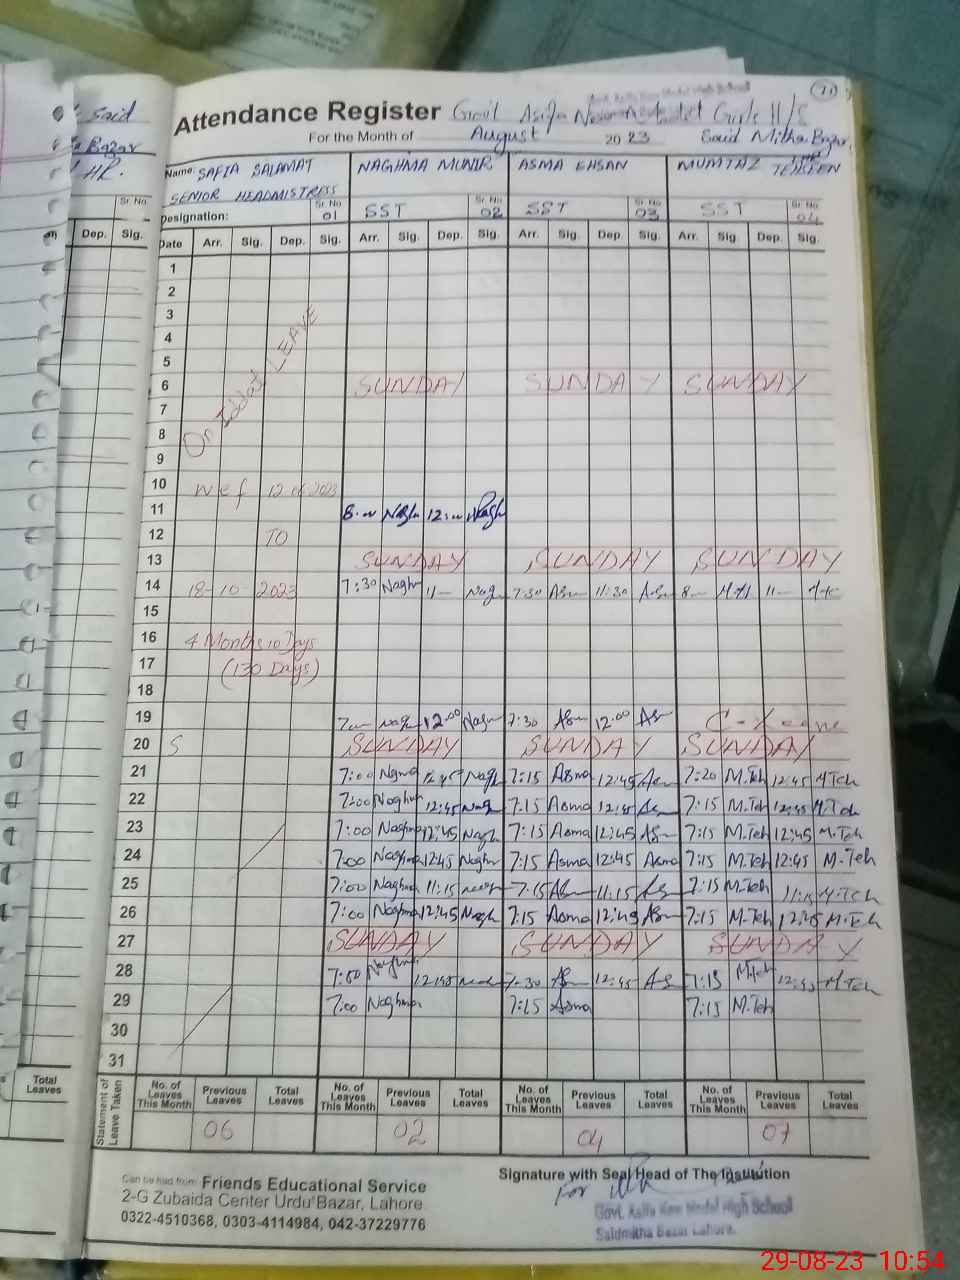 Said
Bazar
HR.
Attendance Register Govt Asifa Kew Model Girls H/S
For the Month of August 2023 Said Mitha Bazar
Name: SAFIA SALAMAT NAGHMA MUNIR ASMA EHSAN MUMTAZ TEHREEN
SENIOR HEADMISTRESS
Sr. No. Sr. No. Sr. No. Sr. No. Sr. No.
Designation: 01 SST 02 SST 03 SST 04
Dep. Sig. Date Arr. Sig. Dep. Sig. Arr. Sig. Dep. Sig. Arr. Sig. Dep. Sig. Arr. Sig. Dep. Sig.
1
2
3
4
5
On Iddat LEAVE
6 SUNDAY SUNDAY SUNDAY
7
8
9
10 wef 12.06.2023
11 8:00 Nagh 12:00 Nagh
12 TO
13 SUNDAY SUNDAY SUNDAY
14 18-10-2023 7:30 Naghm 11— Nagh 7:30 Asm 11:30 Asm 8— 11—
15
16 4 Months 10 Days
17 (130 Days)
18
19 7— Naghm 12:00 Naghm 7:30 Asm 12:00 As C-Leave
20 S SUNDAY SUNDAY SUNDAY
21 7:00 Nagma 12:45 Nagh 7:15 Asma 12:45 Asm 7:20 M.Teh 12:45 M Teh
22 7:00 Naghm 12:45 Nagh 7:15 Asma 12:45 Asm 7:15 M.Teh 12:45 M.Teh
23 7:00 Naghma 12:45 Nagh 7:15 Asma 12:45 Asm 7:15 M.Teh 12:45 M.Teh
24 7:00 Naghma 12:45 Naghm 7:15 Asma 12:45 Asma 7:15 M.Teh 12:45 M.Teh
25 7:00 Naghma 11:15 7:15 Asm 11:15 Asm 7:15 M.Teh 11:15 M.Teh
26 7:00 Naghma 12:45 Nagh 7:15 Asma 12:45 Asm 7:15 M.Teh 12:45 M.Teh
27 SUNDAY SUNDAY SUNDAY
28 7:00 Naghm 12:45 7:30 Asm 12:45 As 7:15 M.Teh 12:45 M.Teh
29 7:00 Naghma 7:15 Asma 7:15 M.Teh
30
31
Total Leaves Statement of Leave Taken No. of Leaves This Month Previous Leaves Total Leaves No. of Leaves This Month Previous Leaves Total Leaves No. of Leaves This Month Previous Leaves Total Leaves No. of Leaves This Month Previous Leaves Total Leaves
06 02 04 07
Can be had from: Friends Educational Service
2-G Zubaida Center Urdu Bazar, Lahore
0322-4510368, 0303-4114984, 042-37229776
Signature with Seal Head of The Institution
For
Govt. Asifa Kew Model High School
Saidmitha Bazar Lahore.
29-08-23 10:54